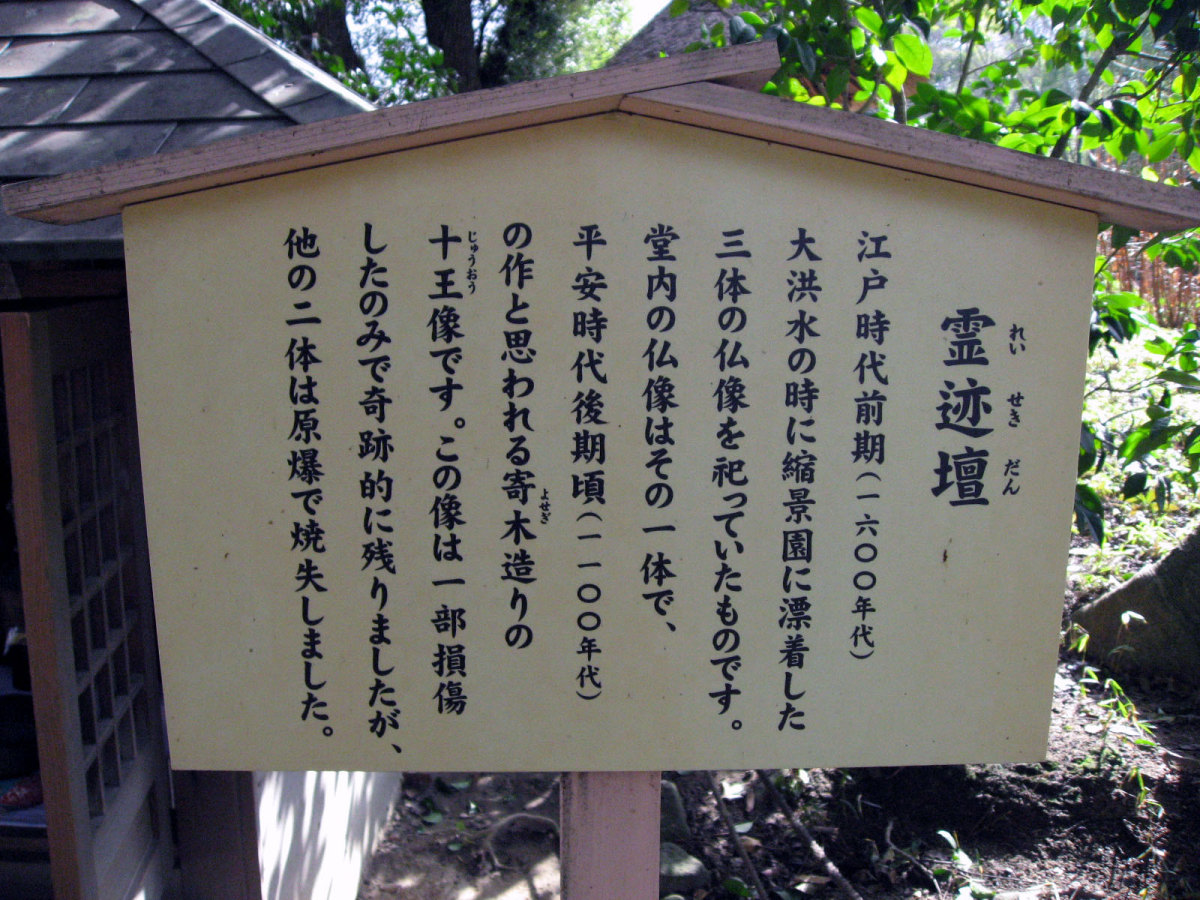 霊迹壇
れい せき だん
江戸時代前期(一六〇〇年代)
大洪水の時に縮景園に漂着した
三体の仏像を祀っていたものです。
堂内の仏像はその一体で、
平安時代後期頃(一一〇〇年代)
の作と思われる寄木造りの
よせぎ
十王像です。この像は一部損傷
じゅうおう
したのみで奇跡的に残りましたが、
他の二体は原爆で焼失しました。